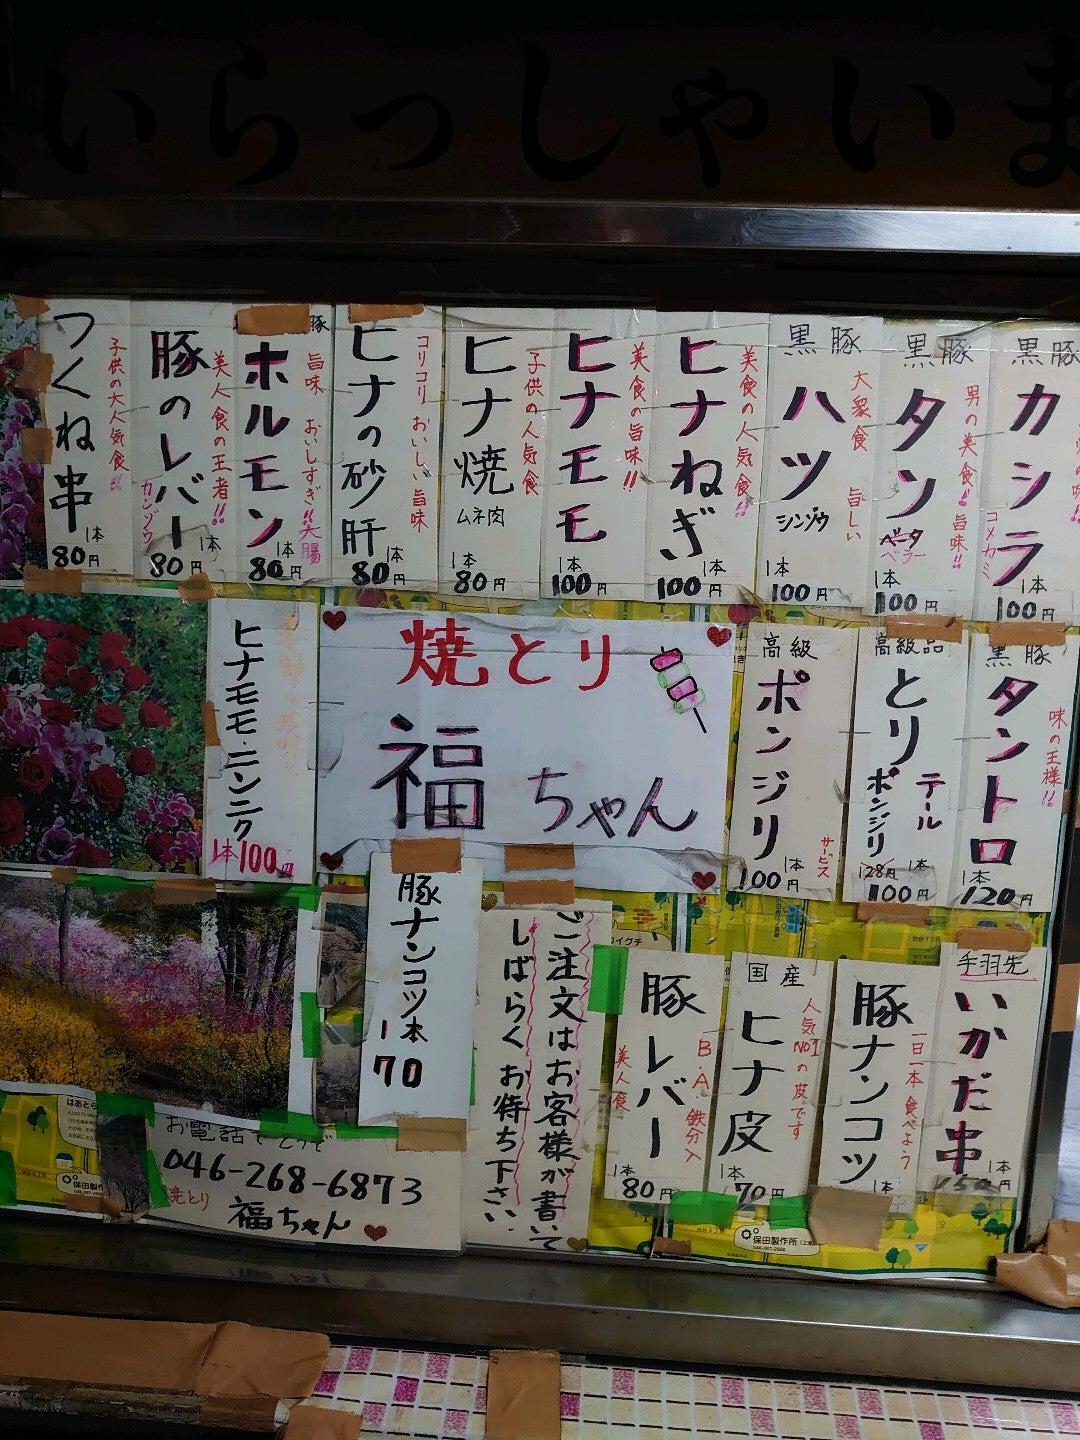 いらっしゃいま
黒豚
カシラ
コメカミ
1本
100円
黒豚
タン
男の美食!! 旨味!!
1本
100円
黒豚
ハツ
シンゾウ
大衆食 旨しい
1本
100円
ヒナねぎ
美食の人気食!!
1本
100円
ヒナモモ
美食の旨味!!
1本
100円
ヒナ焼
ムネ肉
子供の人気食
1本
80円
ヒナの砂肝
コリコリ おいしい旨味
1本
80円
豚
ホルモン
旨味 おいしすぎ!!
大腸
1本
80円
豚のレバー
カンゾウ
美人食の王者!!
1本
80円
つくね串
子供の大人気食!!
1本
80円
黒豚
タントロ
味の王様!!
1本
120円
高級品
とりテール
ポンジリ
128円
1本
100円
高級
ポンジリ
サービス
1本
100円
焼とり
福ちゃん
ヒナモモ・ニンニク
1本100円
手羽先
いかだ串
1本
150円
豚ナンコツ
一日一本食べよう
1本
国産
ヒナ皮
人気NO1の皮です
1本
70円
豚レバー
B.A.鉄分入
美人食
1本
80円
ご注文はお客様が書いて
しばらくお待ち下さい
豚ナンコツ
1本
70
お電話で
046-268-6873
焼とり
福ちゃん
保田製作所